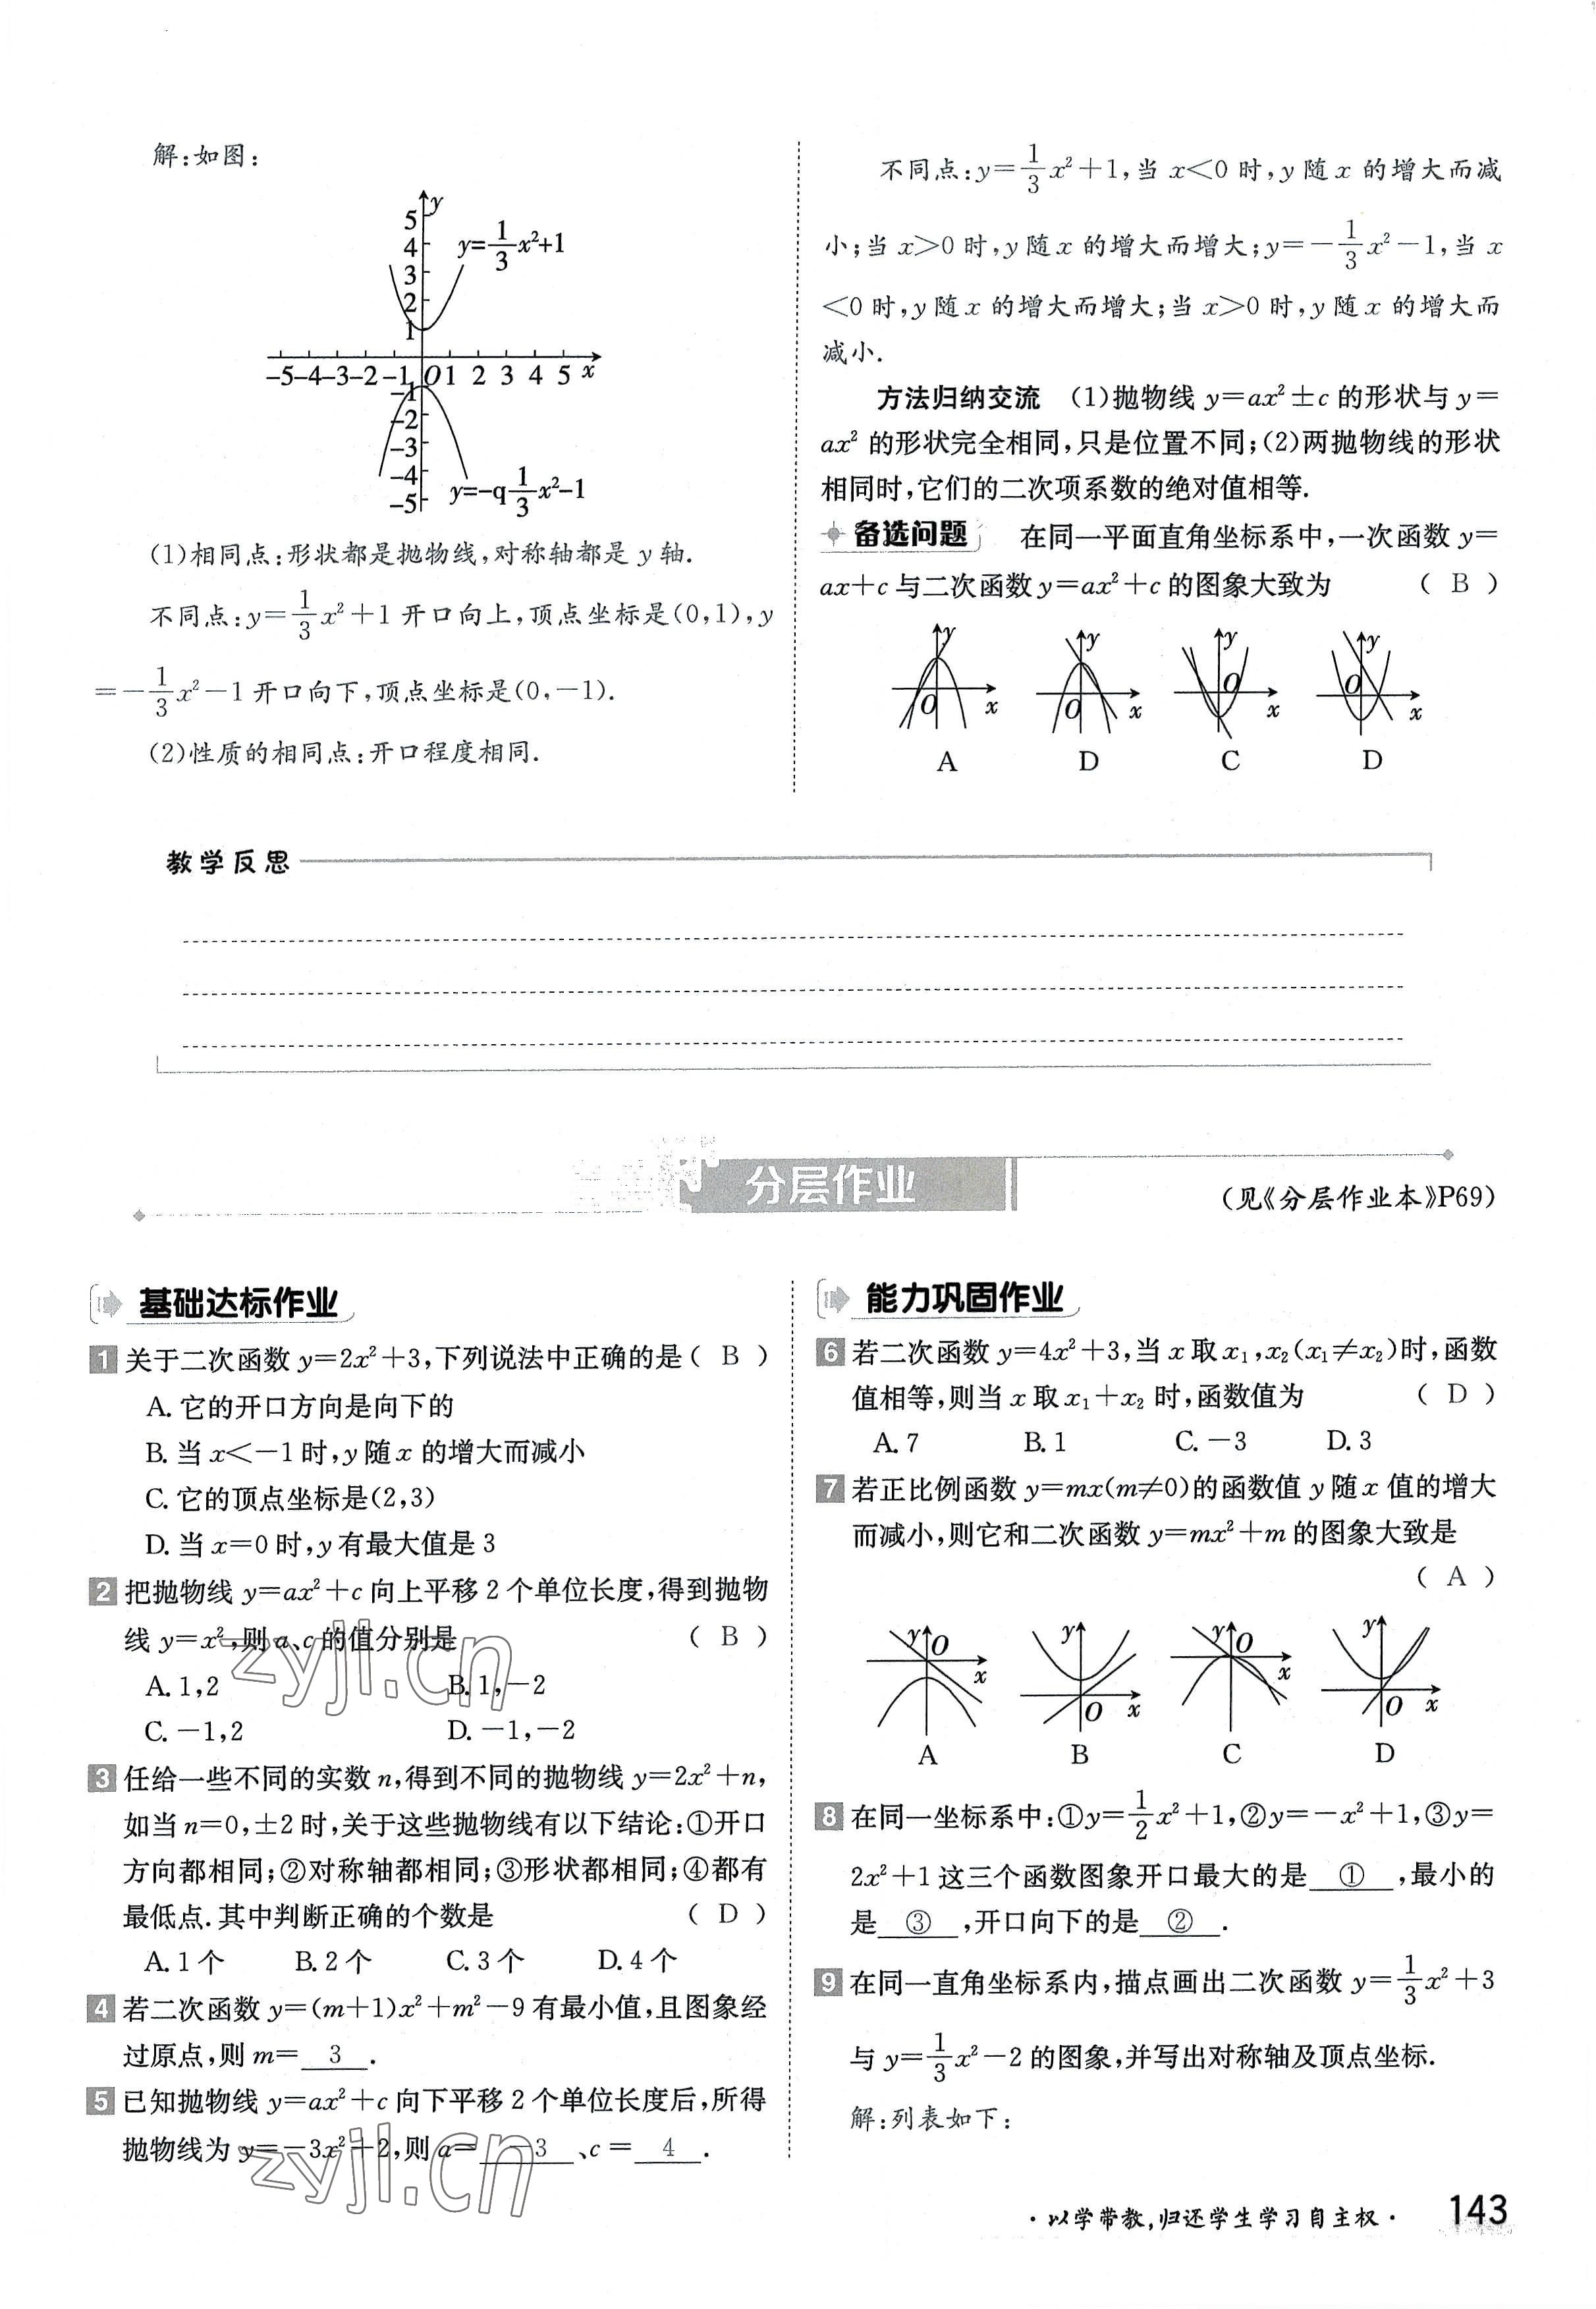 解:如图:
y
5
4
3
2
1
y=1/3x²+1
-5-4-3-2-1 O1 2 3 4 5 x
-1
-2
-3
-4
-5
y=-q1/3x²-1
(1)相同点:形状都是抛物线,对称轴都是 y 轴.
不同点:y=1/3x²+1 开口向上,顶点坐标是(0,1),y
=-1/3x²-1 开口向下,顶点坐标是(0,-1).
(2)性质的相同点:开口程度相同.
不同点:y=1/3x²+1,当 x<0 时,y 随 x 的增大而减
小;当 x>0 时,y 随 x 的增大而增大;y=-1/3x²-1,当 x
<0 时,y 随 x 的增大而增大;当 x>0 时,y 随 x 的增大而
减小.
方法归纳交流 (1)抛物线 y=ax²±c 的形状与 y=
ax² 的形状完全相同,只是位置不同;(2)两抛物线的形状
相同时,它们的二次项系数的绝对值相等.
备选问题 在同一平面直角坐标系中,一次函数 y=
ax+c 与二次函数 y=ax²+c 的图象大致为 ( B )
y O x y O x y O x y O x
A D C D
教学反思
分层作业
(见《分层作业本》P69)
基础达标作业
1 关于二次函数 y=2x²+3,下列说法中正确的是( B )
A. 它的开口方向是向下的
B. 当 x<-1 时,y 随 x 的增大而减小
C. 它的顶点坐标是(2,3)
D. 当 x=0 时,y 有最大值是 3
2 把抛物线 y=ax²+c 向上平移 2 个单位长度,得到抛物
线 y=x²,则 a、c 的值分别是 ( B )
A. 1,2 B. 1,-2
C. -1,2 D. -1,-2
3 任给一些不同的实数 n,得到不同的抛物线 y=2x²+n,
如当 n=0,±2 时,关于这些抛物线有以下结论:①开口
方向都相同;②对称轴都相同;③形状都相同;④都有
最低点.其中判断正确的个数是 ( D )
A. 1 个 B. 2 个 C. 3 个 D. 4 个
4 若二次函数 y=(m+1)x²+m²-9 有最小值,且图象经
过原点,则 m= 3 .
5 已知抛物线 y=ax²+c 向下平移 2 个单位长度后,所得
抛物线为 y=-3x²+2,则 a= -3 、c = 4 .
能力巩固作业
6 若二次函数 y=4x²+3,当 x 取 x₁,x₂(x₁≠x₂)时,函数
值相等,则当 x 取 x₁+x₂ 时,函数值为 ( D )
A. 7 B. 1 C. -3 D. 3
7 若正比例函数 y=mx(m≠0)的函数值 y 随 x 值的增大
而减小,则它和二次函数 y=mx²+m 的图象大致是
( A )
y O x y O x y O x y O x
A B C D
8 在同一坐标系中:①y=1/2x²+1,②y=-x²+1,③y=
2x²+1 这三个函数图象开口最大的是 ① ,最小的
是 ③ ,开口向下的是 ② .
9 在同一直角坐标系内,描点画出二次函数 y=1/3x²+3
与 y=1/3x²-2 的图象,并写出对称轴及顶点坐标.
解:列表如下:
zyjl.cn
zyjl.cn
· 以学带教,归还学生学习自主权 · 143